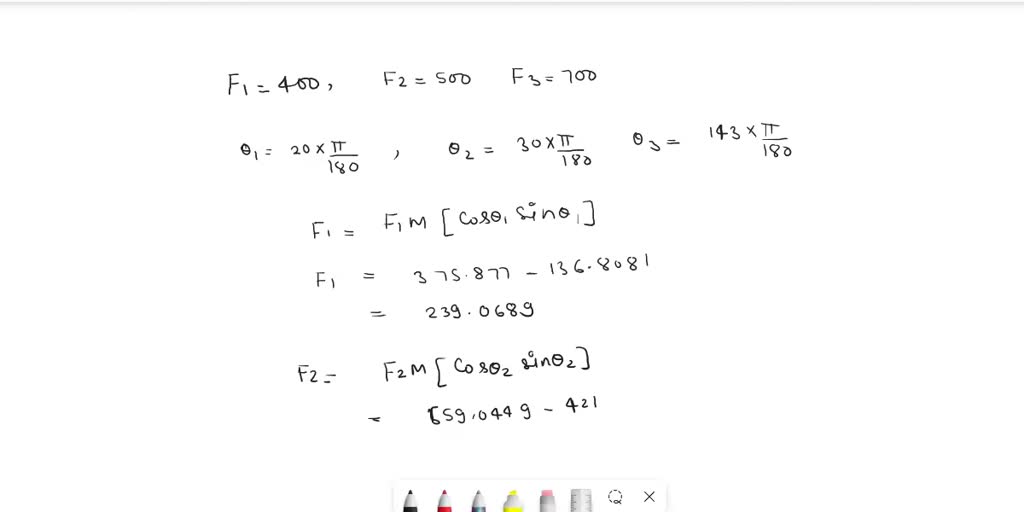 F1 = 400, F2 = 500 F3 = 700
θ1 = 20 × π/180 , θ2 = 30 × π/180 θ3 = 143 × π/180
F1 = F1M [cosθ1 sinθ1]
F1 = 375.877 - 136.8081
= 239.0689
F2 = F2M [cosθ2 sinθ2]
= 659.0449 - 421